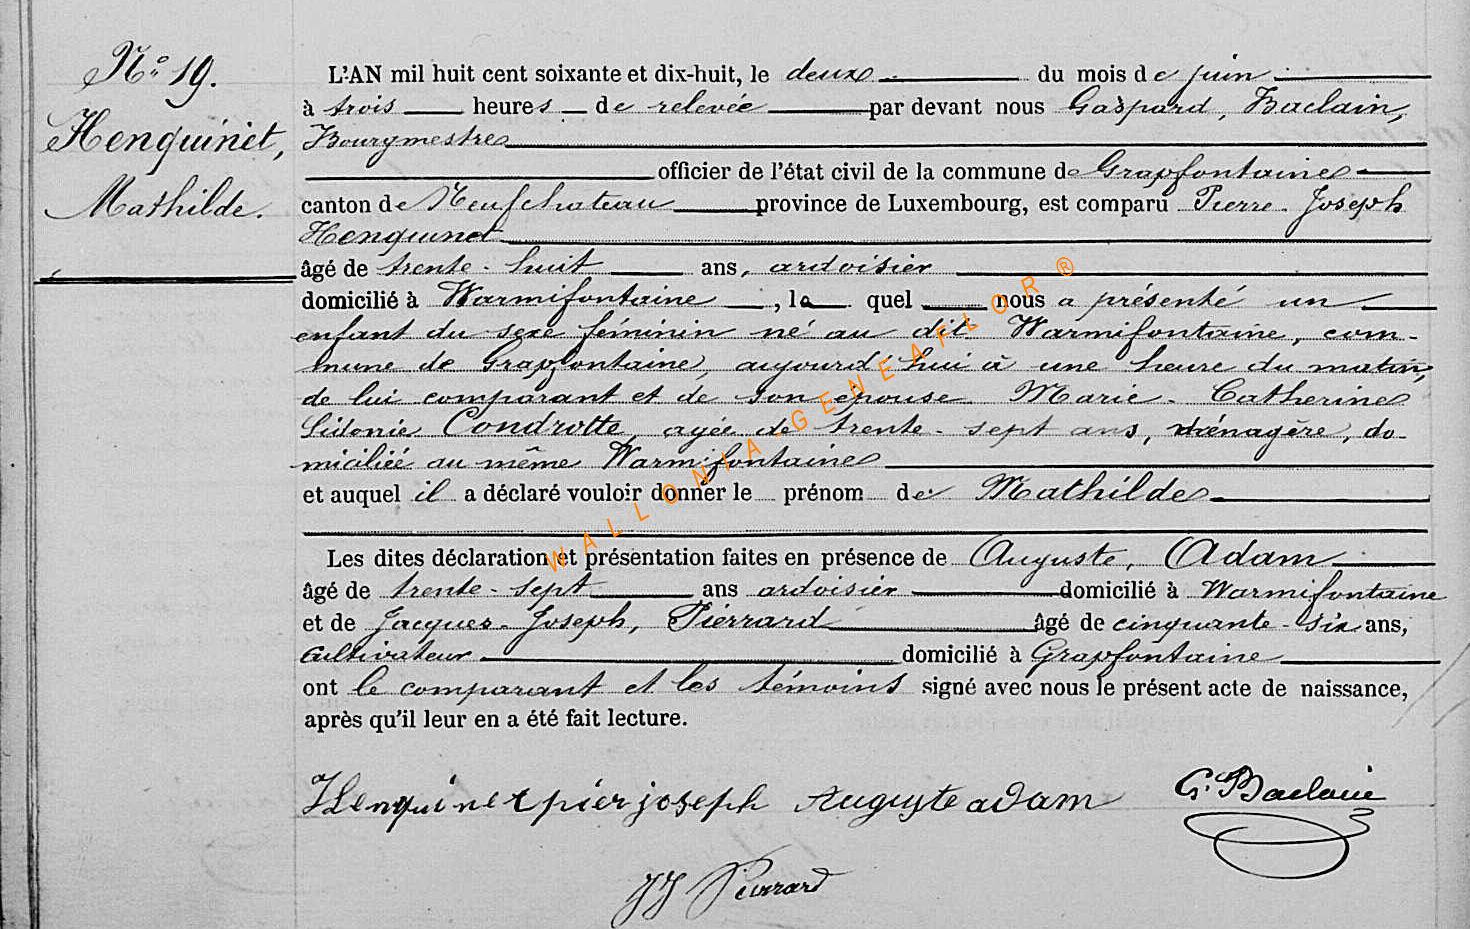 N° 19.
Henquinet,
Mathilde.
L'AN mil huit cent soixante et dix-huit, le deux du mois de juin
à trois heures de relevée par devant nous Gaspard, Baclain,
Bourgmestre
officier de l'état civil de la commune de Grapfontaine
canton de Neufchateau province de Luxembourg, est comparu Pierre-Joseph
Henquinet
âgé de trente-huit ans, ardoisier
domicilié à Warmifontaine, le quel nous a présenté un
enfant du sexe féminin né au dit Warmifontaine, com-
mune de Grapfontaine, aujourd'hui à une heure du matin,
de lui comparant et de son épouse Marie-Catherine
Sidonie Condrotte, agée de trente-sept ans, ménagère, do-
miciliée au même Warmifontaine
et auquel il a déclaré vouloir donner le prénom de Mathilde
Les dites déclaration et présentation faites en présence de Auguste, Adam
âgé de trente-sept ans ardoisier domicilié à Warmifontaine
et de Jacques-Joseph, Pierrard âgé de cinquante-six ans,
cultivateur domicilié à Grapfontaine
ont le comparant et les témoins signé avec nous le présent acte de naissance,
après qu'il leur en a été fait lecture.
Henquinet pier joseph Auguste adam G. Baclain
JJ Pierrard
WALLONIA-GENEAFLOR®